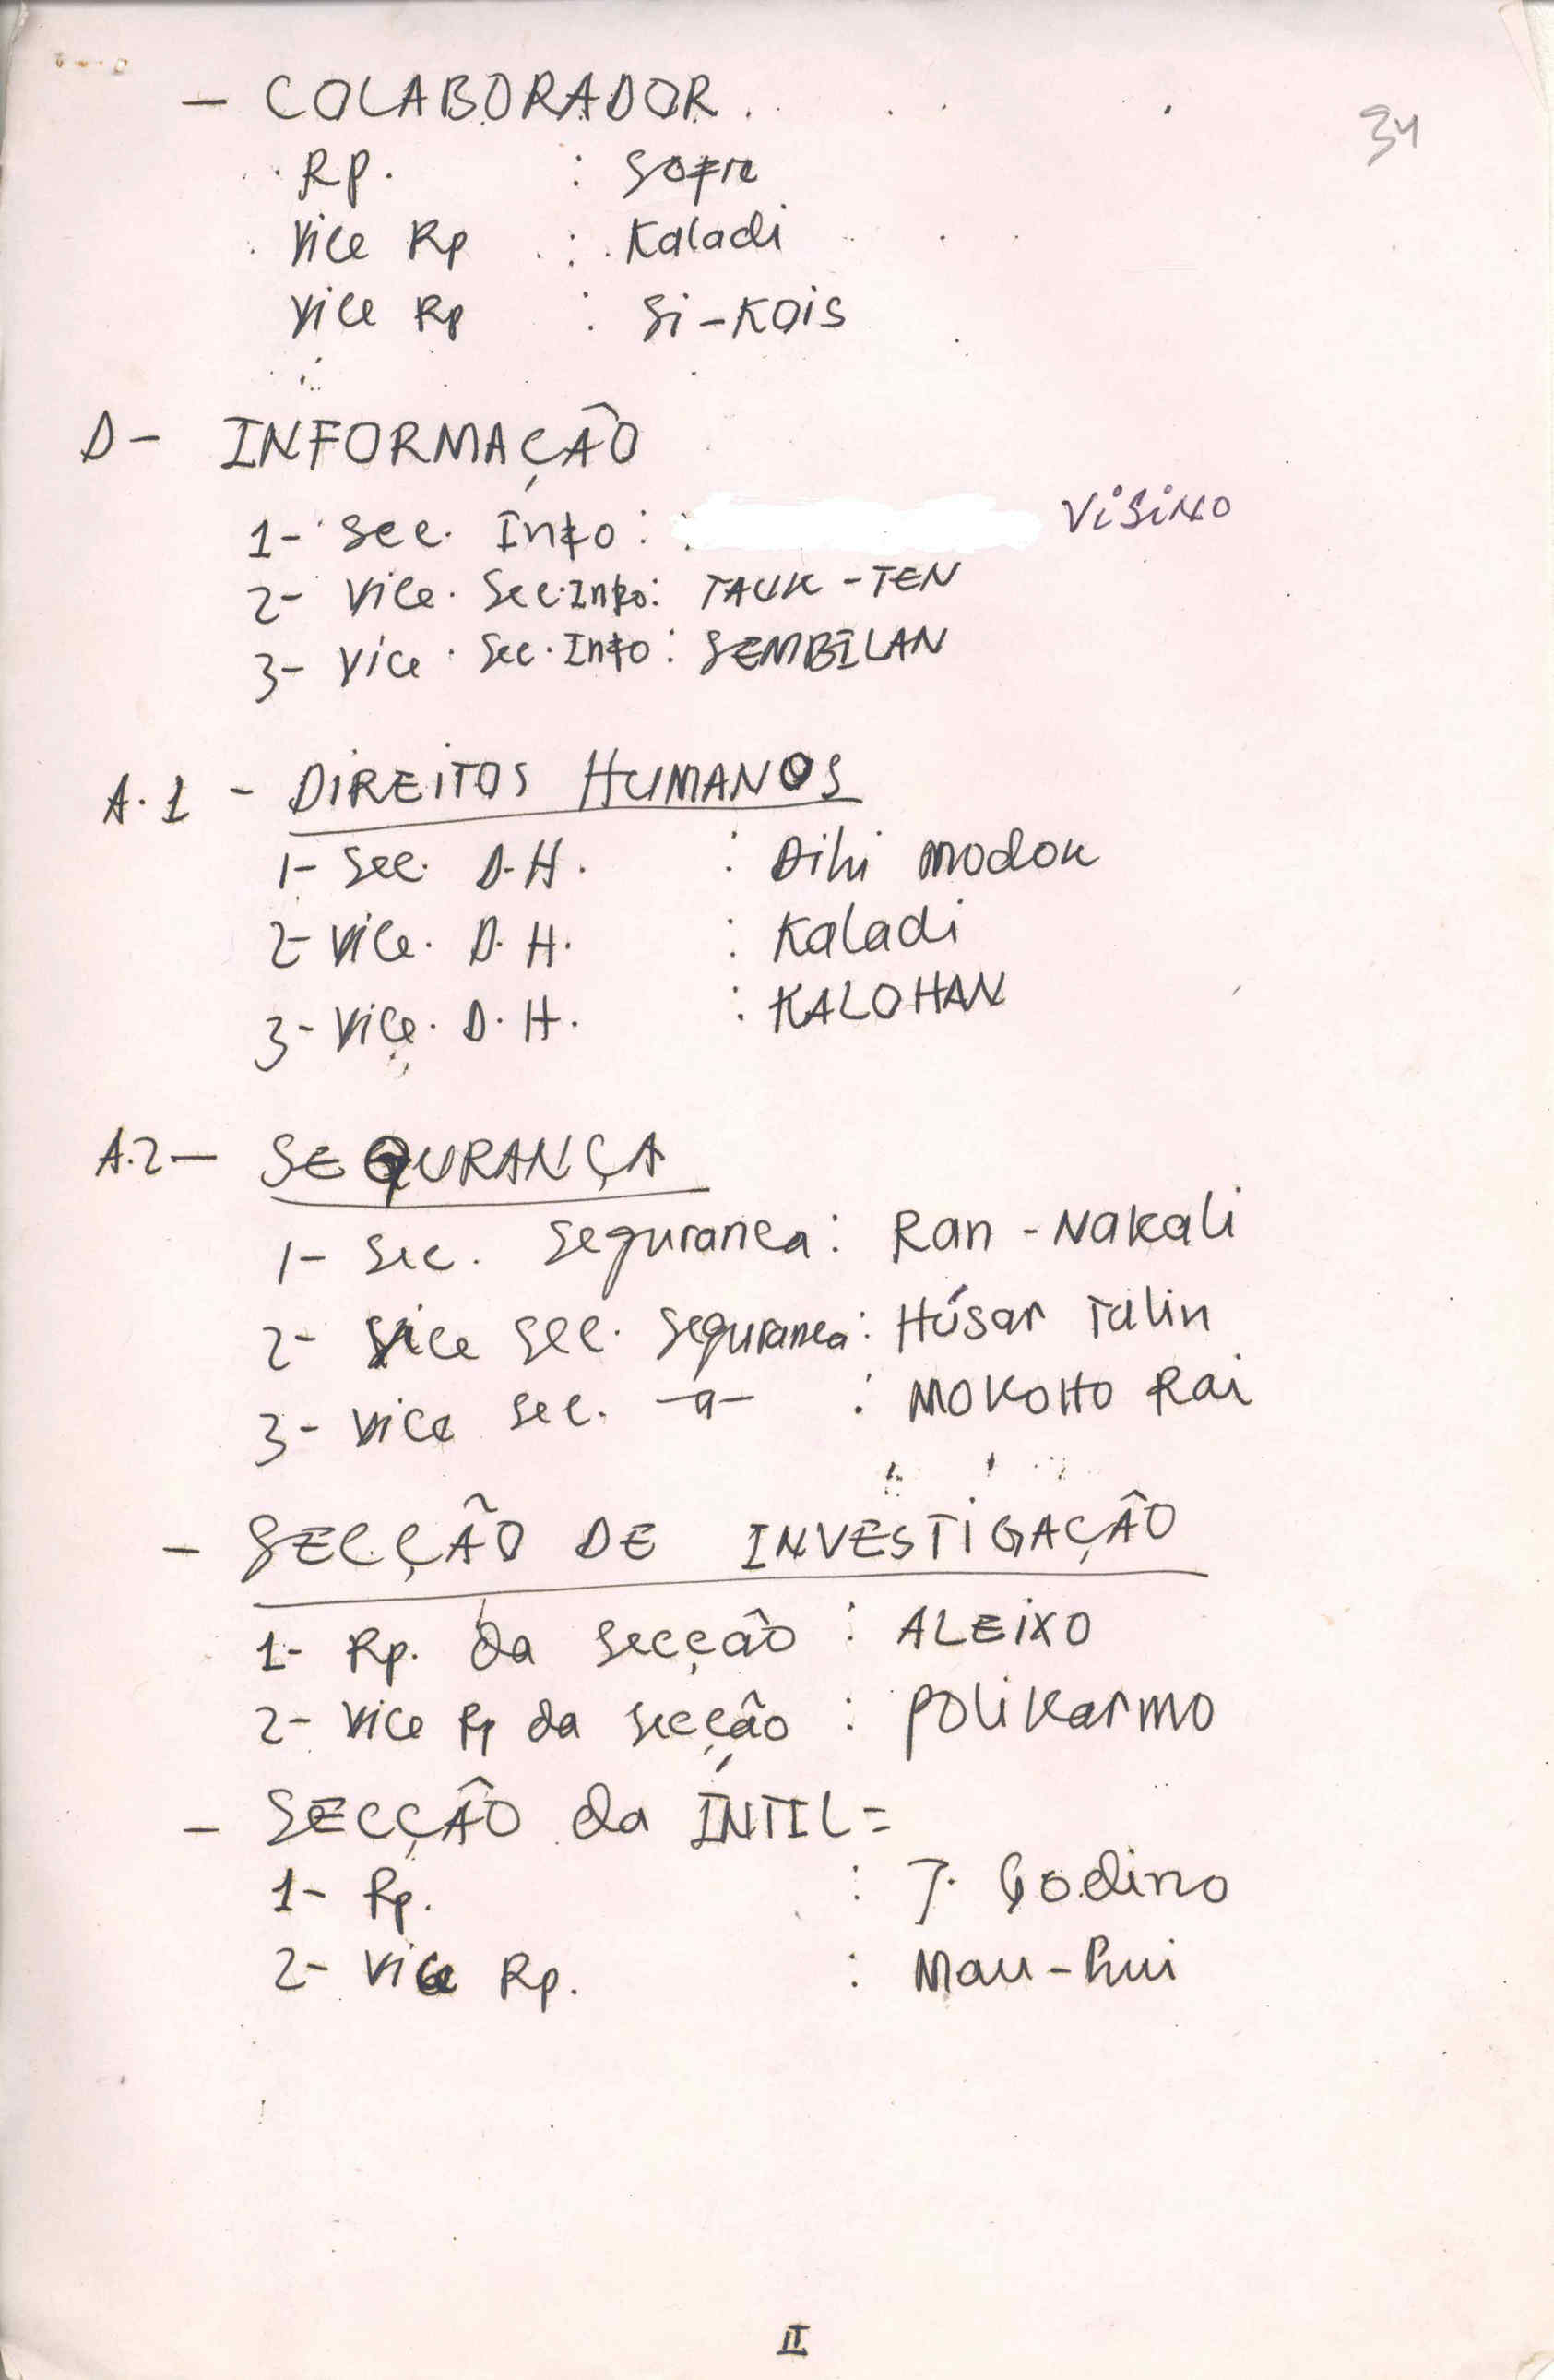 - COLABORADOR.
34
Rp. : Sofre
Vice Rp : Kaladi
Vice Rp : Si-Kois
D- INFORMAÇÃO
1- Sec. Info: VISINO
2- Vice. Sec. Info: TAUK-TEN
3- Vice. Sec. Info: SEMBILAN
A.1 - DIREITOS HUMANOS
1- Sec. D.H. : Dihi modok
2- Vice. D.H. : Kaladi
3- Vice. D.H. : KALOHAN
A.2- SEGURANÇA
1- Sec. Seguranca: Ran-Nakali
2- Vice Sec. Seguranca: Húsar Talin
3- Vice Sec. -"- : MOKOHO Rai
- SECÇÃO DE INVESTIGAÇÃO
1- Rp. da Secção : ALEIXO
2- Vice Rp da Secção : POLIKarMO
- SECÇÃO da INTIL=
1- Rp. : T. Godino
2- Vice Rp. : Mau-Rui
II